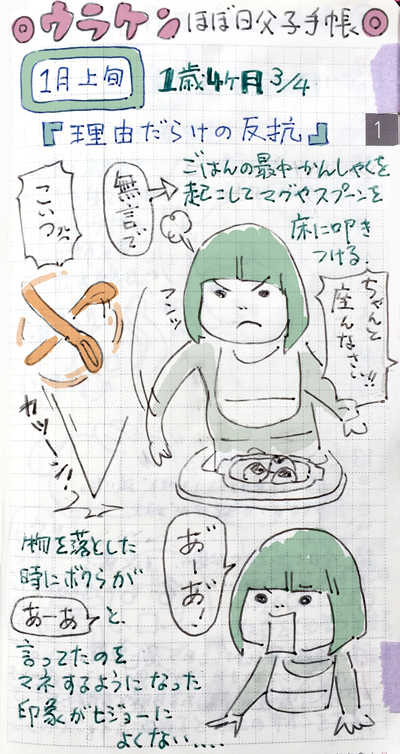 ◎ウラケン ほぼ日父子手帳◎
1月上旬
1歳4ヶ月 3/4
『理由だらけの反抗』
1
ごはんの最中かんしゃくを
起こしてマグやスプーンを
床に叩き
つける。
無言で
こいつ
ちゃんと
座んなさい!!
カツーン!
物を落とした
時にボクらが
あーあ と、
言ってたのを
マネするようになった
印象がヒジョーに
よくない....
あ゛ーあ゛!